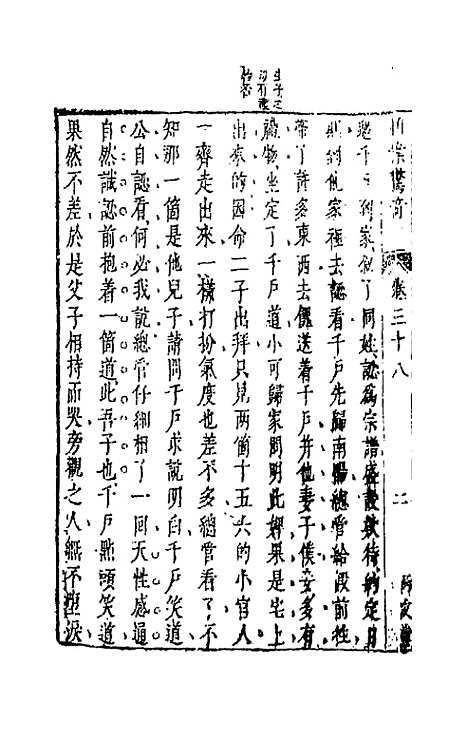 生子之
拍案驚奇 卷三十八 二 尚友堂
邀千戶到家敘了同姓認爲宗譜盛設款待約定日
期到他家裡去認看千戶先歸南陽總管給假前往
帶了許多東西去餽送着千戶并他妻子僕妾多有
禮物坐定了千戶道小可歸家問明此婢果是宅上
出來的因命二子出拜只見兩箇十五六的小官人
一齊走出來一樣打扮氣度也差不多總管看了不
知那一箇是他兒子請問千戶求說明白千戶笑道
公自認看何必我說總管仔細相了一回天性感通
自然識認前抱着一箇道此吾子也千戶點頭笑道
果然不差於是父子相持而哭旁觀之人無不墮淚